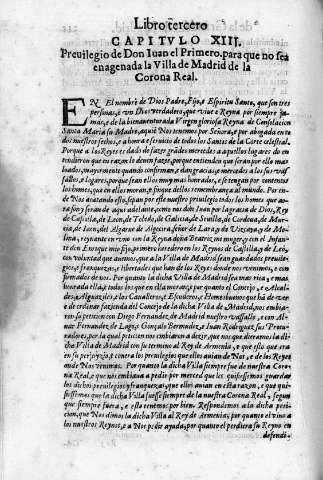 Libro tercero
CAPITVLO XIII.
Preuilegio de Don Iuan el Primero, para que no sea
enagenada la Villa de Madrid de la
Corona Real.
EN El nombre de Dios Padre, Fijo, e Espiritu Santo, que son tres
personas, e vn Dios verdadero, que viue e Reyna por siempre ja-
mas, e de la bienauenturada Virgen gloriosa Reyna de Consolacion
Santa Maria su Madre, a quiē Nos tenemos por Señora, e por abogada en to
dos nuestros fechos, e a honra e seruicio de todos los Santos de la Corte celestial.
Porque a los Reyes es dado de fazer grādes mercedes a aquellos logares do en-
tendieren que en razon lo deuen fazer, porque entienden que seran por ello mas
loados, mayormente quando confirman e dan gracias e mercedes a las sus vil-
las, e logares, porque sean ellos mas honrados, e se tengan por contentos
los homes, que en ellos moran, e finque dellos remembrança al mundo. Por en-
de Nos acatando esto, sepan por este nuestro priuilegio todos los homes que ao-
ra son y seran de aqui adelante, como nos don Iuan por la gracia de Dios, Rey
de Castilla, de Leon, de Toledo, de Galicia, de Seuilla, de Cordoua, de Mur-
cia, de Iaen, del Algarue de Algecira, señor de Lara, y de Vizcaya, y de Mo-
lina, reynante en vno con la Reyna doña Beatriz, me muger, y con el Infan-
te don Enrique mio fijo, primero heredero en los Reynos de Castilla, y de Leō,
con voluntad que auemos, que a la Villa de Madrid sean guardados preuile-
gios, e franquezas, e libertades que han de los Reyes donde nos venimos, e con-
firmados de nos. Por quanto la dicha Villa de Madrid sea mas rica, e mas
honrada ella, e todos los que en ella moran, e por quanto el Concejo, e Alcal-
des, e Alguaziles, e los Caualleros, e Escuderos, e Homesbuenos que hā de ve-
er e ordenar fazienda del Concejo de la dicha Villa de Madrid, nos embia-
ron su peticion con Diego Fernandez de Madrid nuestro vassallo, e con Al-
uar Fernandez de Lago, e Gonçalo Bermudez, e Iuan Rodriguez sus Procu-
radores, por la qual peticion nos embiaron a dezir, que nos que dieramos la di-
cha Villa de Madrid con su termino al Rey de Armenia, y que esto que era
en su perjuyzio, e contra los preuilegios que ellos auian de Nos, e de los Reyes
onde Nos venimos. Por quanto la dicha Villa siempre fue de nuestra Corona
Real, e que nos embiaua a pedir por merced que les quisiessemos guardar
los dichos preuilegios y franquezas, que ellos auian en esta razon, e que qui-
siessemos que la dicha Villa fuesse siempre de la nuestra Corona Real, segun
que siempre fuera, e esto tenemos por bien. Respondemos a la dicha peti-
cion, que Nos dimos la dicha Villa al Rey de Armenia, por quanto el vino a
los nuestros Reynos, e a Nos pedir ayuda, por quanto el perdiera su Reyno en
defendi-